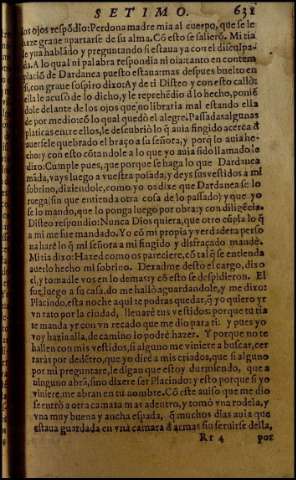 SETIMO. 631
los ojos respõdio: Perdona madre mia al cuerpo, que se le
haze graue apartarse de su alma. Cõ esto se saliero. Mi tia
le yua hablãdo y preguntando si estaua ya con el disculpa-
da. A lo qual ni palabra respondia ni oia: tanto en contem
placiõ de Dardanea puesto estaua: mas despues buelto en
si, con graue sospiro dixo: Ay de ti Disteo y con esto callò:
ella le acuso de lo dicho, y le reprehẽdio d lo hecho, poniẽ
dole delante de los ojos que no libraria mal estando ella
de por medio: cõ lo qual quedò el alegre. Passadas algunas
platicas entre ellos, le descubriò lo q̃ auia fingido acerca d
auerse le quebrado el braço a su señora, y porq̃ lo auia he-
cho: y con esto cõtandole a lo que yo auia sido llamado le
dixo: Cumple pues, que porque se haga lo que Dardanea
mãda, vays luego a vuestra posada, y deys sus vestidos a mi
sobrino, diziendole, como yo os dixe que Dardanea se lo
ruega (sin que entienda otra cosa de lo passado) y que yo
se lo mando, que lo ponga luego por obra: y con diligẽcia.
Disteo respondio: Nunca Dios quiera, que otro cũpla lo q̃
a mi me fue mandado. Yo cõ mi propia y verdadera perso
na harè lo q̃ mi señora a mi fingido y disfraçado mandè.
Mi tia dixo: Hazed como os pareciere, cõ tal q̃ se entienda
auerlo hecho mi sobrino. Deradme desto el cargo, dixo
el, y tomadle vos en lo demas: y cõ esto se despidieron. El
fuè, luego a su casa, do me hallò aguardandole, y me dixo:
Placindo, esta noche aqui te podras quedar, q̃ yo quiero yr
vn rato por la ciudad, lleuarè tus vestidos: porque tu tia
te manda yr con vn recado que me dio para ti: y pues yo
voy hazia alla, de camino lo podrè hazer. Y porque no te
hallen con mis vestidos, si alguno me viniere a buscar, cer
raras por dẽtro, que yo dirè a mis criados, que si alguno
por mi preguntare, le digan que estoy durmiendo, que a
ninguno abrã, sino dixere ser Placindo: y esto porque si yo
viniere, me abran en tu nombre. Cõ este auiso que me dio
se entrò a otra camara mas adentro, y tomò vna rodela, y
vna muy buena y ancha espada, q̃ muchos dias auia que
estaua guardada en vna camara d armas sin seruirse della,
Rr 4 por